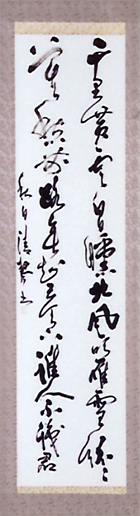 千里黃雲白日曛北風吹雁雪紛々
莫愁前路無知己天下誰人不識君
秋日